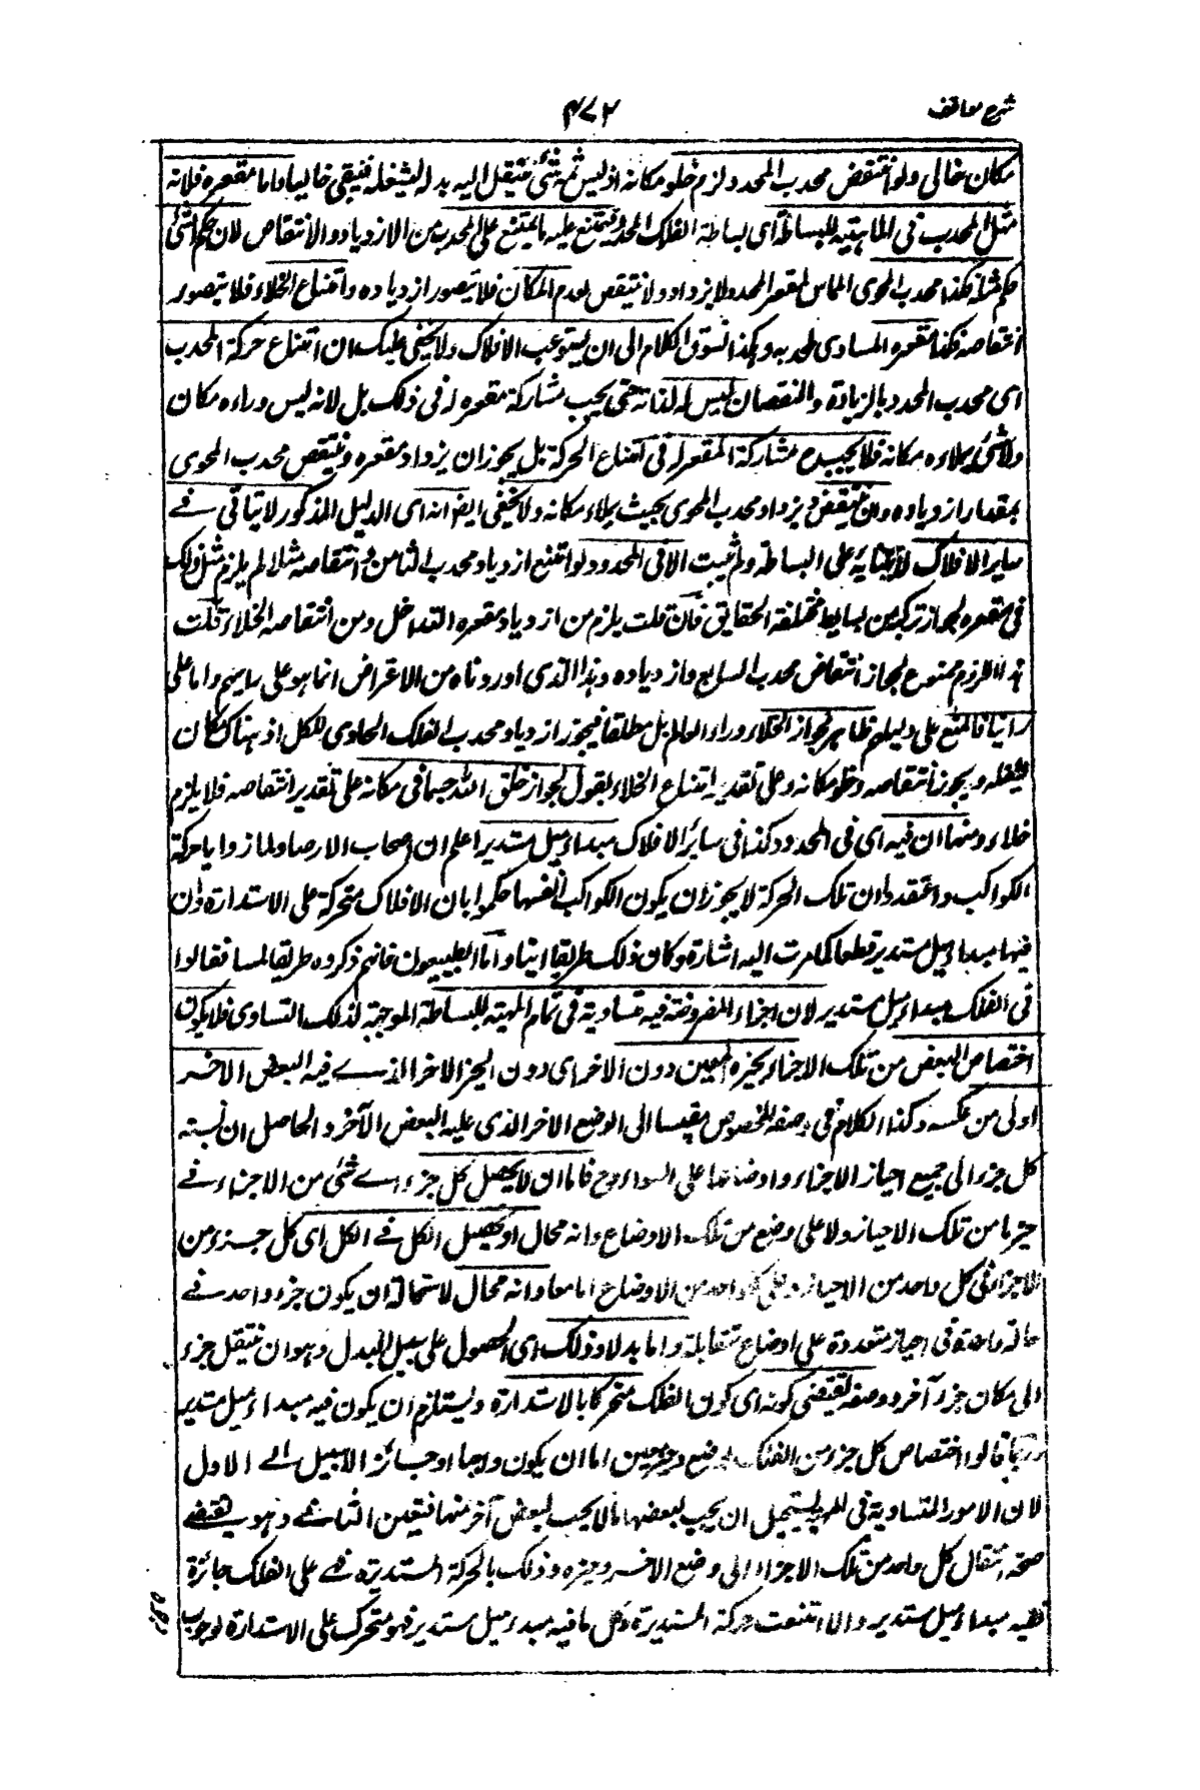 شرح مواقف
٤٧٢
مكان خالى ولو انتقض محدب المحدد لزم خلو مكانه اذ ليس ثم شئ ينتقل اليه بدله ليشغله فيبقى خاليا واما مقعره فلانه
مثل المحدب فى الماهية للبساطة أى لبساطة الفلك المحدد فيمتنع عليه ما يمتنع على المحدب من الازدياد والانتقاص لان حكم الشئ
حكم مثله فكذا محدب المحوى المماس لمقعر المحدد لا يزداد ولا ينتقص لعدم المكان فلا يتصور ازدياده وامتناع الخلاء فلا يتصور
انتقاصه فكذا مقعره المساوى لمحدبه وهكذا نسوق الكلام الى ان يستوعب الافلاك ولا يخفى عليك ان امتناع حركة المحدب
اى محدب المحدد بالزيادة والنقصان ليس له لذاته حتى يجب مشاركة مقعره له فى ذلك بل لانه ليس وراءه مكان
ولا شئ يملاءه مكانه فلا يجب ح مشاركة المقعر له فى امتناع الحركة بل يجوز ان يزداد مقعره وينتقص محدب المحوى
بمقدار ازدياده وان ينتقص ويزداد محدب المحوى بحيث يملاء مكانه ولا يخفى ايضا انه اى الدليل المذكور لا يتأتى فے
ساير الافلاك لابتنائه على البساطة ولم تثبت الا فى المحدد ولو امتنع ازدياد محدب الثامن وانتقاصه مثلا لم يلزم مثل ذلك
فى مقعره لجواز تركبه من بسايط مختلفة الحقايق فان قلت يلزم من ازدياد مقعره التداخل ومن انتقاصه الخلاء قلت
هذا اللزوم ممنوع لجواز انتقاض محدب السابع وازدياده وهذا الذى اوردناه من الاعتراض انما هو على رايهم واما على
راينا فالمنع على دليلهم ظاهر لجواز الخلاء وراء العالم بل مطلقا فيجوز ازدياد محدب الفلك الحاوى للكل اذ هناك مكان
يشغله ويجوز انتقاصه وخلو مكانه وعلى تقدير امتناع الخلاء نقول لجواز خلق الله جسما فى مكانه على تقدير انتقاصه فلا يلزم
خلاء ومنها ان فيه اى فى المحدد وكذا فى سائر الافلاك مبداء ميل مستدير اعلم ان اصحاب الارصاد لما زاوا ياحركة
الكواكب واعتقدوا ان تلك الحركة لا يجوز ان يكون للكواكب انفسها حكموا بان الافلاك متحركة على الاستدارة وان
فيها مبداء ميل مستدير قطعا كما مرت اليه اشارة وكان ذلك طريقا انيا واما الطبيعيون فانهم ذكروه طريقا لميا فقالوا
فى الفلك مبداء ميل مستدير لان اجزاءه المفروضة فيه متساوية فى تمام المهية للبساطة الموجبة لذلك التساوى فلا يكون
اختصاص البعض من تلك الاجزاء بحيزه المعين دون الاخر اى دون الحيز الاخر الذے فيه البعض الاخر
اولى من عكسه وكذا الكلام فى وضعه المخصوص مقيسا الى الوضع الاخر الذى عليه البعض الآخر والحاصل ان نسبة
كل جزء الى جميع احياز الاجزاء واوضاعها على السواء وح فاما ان لا يحصل كل جزء اے شئ من الاجزاء فے
حيز ما من تلك الاحياز ولا على وضع من تلك الاوضاع وانه محال او يحصل الكل فے الكل اى كل جزء من
الاجزاء فى كل واحد من الاحياز وعلى كل واحد من الاوضاع اما معا وانه محال لاستحالة ان يكون جزء واحد فے
حالة واحدة فى احياز متعددة على اوضاع متقابلة واما بدلا وذلك اى الحصول على سبيل البدل وهو ان ينتقل جزء
الى مكان جزء آخر ووضعه يقتضى كونه اى كون الفلك متحركا بالاستدارة ويستلزم ان يكون فيه مبداء ميل مستدير
وربما قالوا اختصاص كل جزء من الفلك بوضع وحيز معين اما ان يكون واجبا او جائزا لا سبيل الے الاول
لان الامور المتساوية فى المهية يستحيل ان يجب لبعضها ما لا يجب لبعض آخر منها فتعين الثانے وهو يقتضے
صحة انتقال كل واحد من تلك الاجزاء الى وضع الاخر وحيزه وذلك بالحركة المستديرة فهے على الفلك جائزة
ففيه مبداء ميل مستدير والا امتنعت حركة المستديرة وكل ما فيه مبدء ميل مستدير فهو متحرك على الاستدارة لوجوب